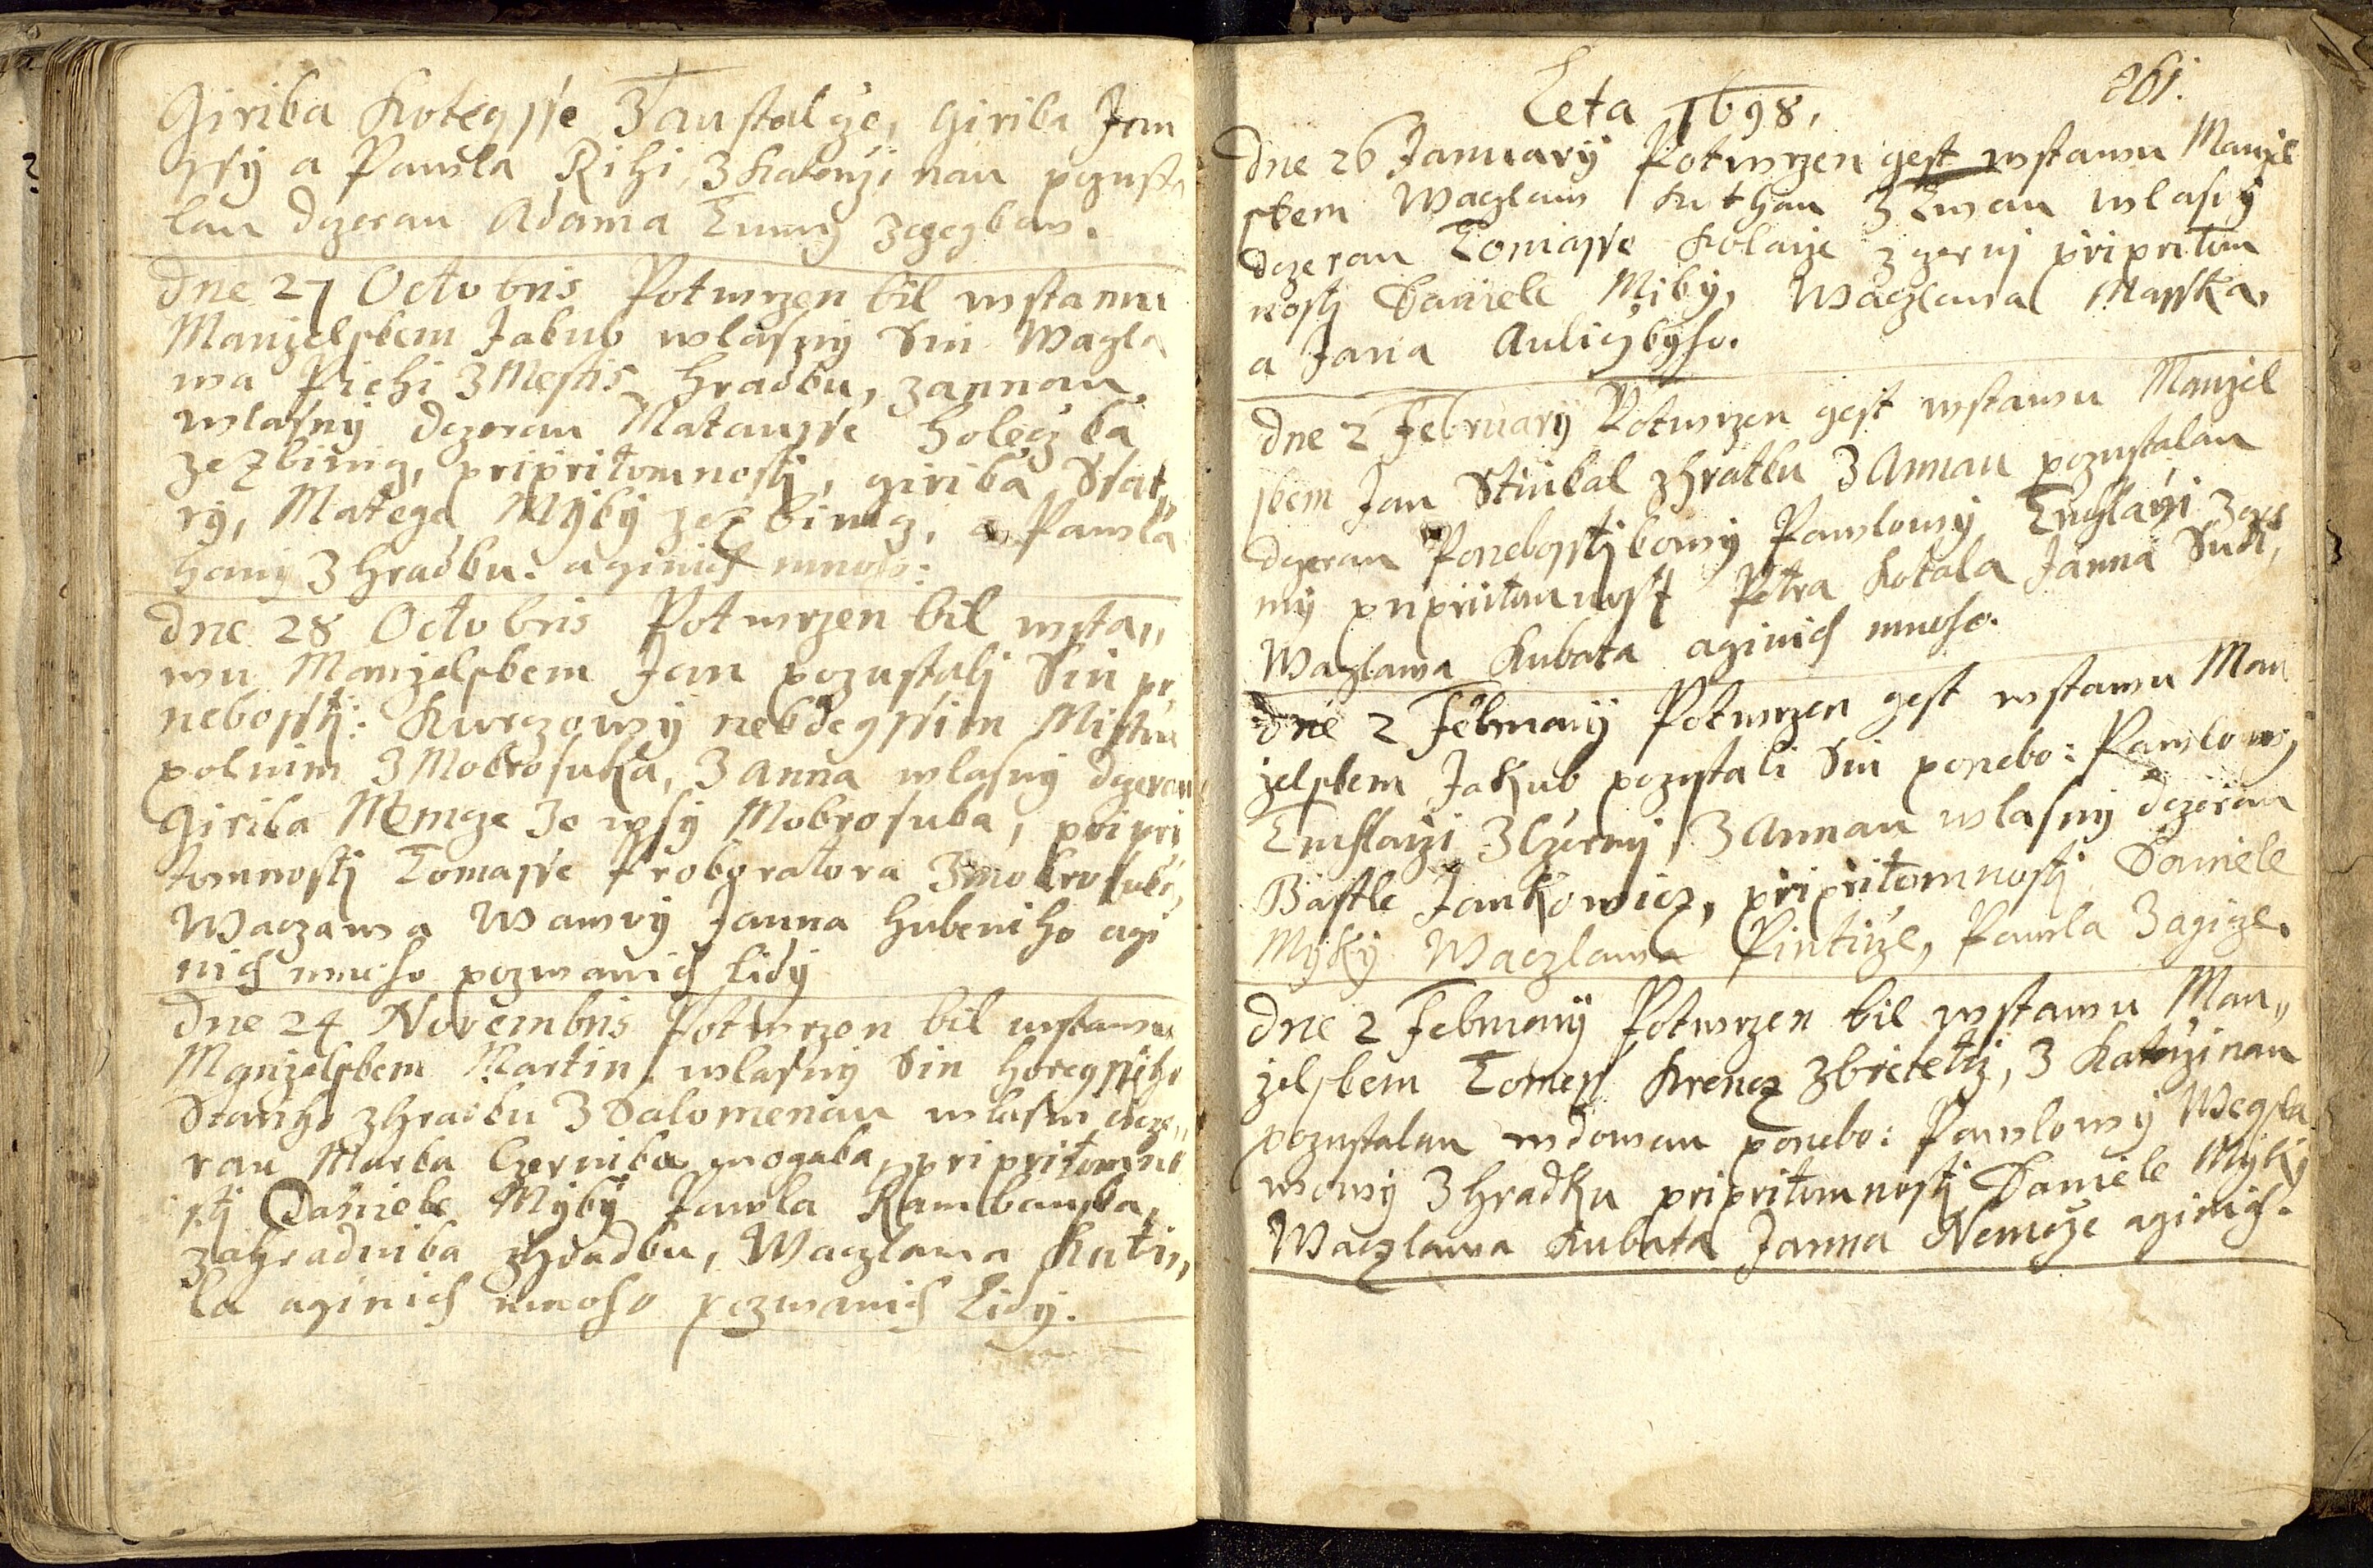 Girika Kotegsse Z Austalcze, Girika Jan
gsy a Pawla Rihi, Z Katerzinau pozusta
lau dczerau Adama Tumy
Dne 27 Octobris Potwrzen bil wstawu
Manzelskem Jakub wlasny Sin Wazla
wa Pichi Z Mesta Hradku, Z annau
wlasny dczerau Matausse Holeczka
ze Zbinig, pripritomnosti, girika Ssat,,
ry, Matege Myky ze Zbinig, a Pawla
Hany Z Hradku: aginich mnoh:
Dne 28 Octobris Potwrzen bil wsta,,
wu Manzelskem Jan pozustalj Sin po
nebosstj: Kurczowy nekdegssim Mistru
polnim Z Mokrosuka, Z Anna wlasny dczerau
Girika Nemcze Ze wsy Mokrosuka, pripri
tomnostj Tomasse Proboratora Zmokrosuk,
Waczawa Wawry Janna Hubeniho agi
nich mnoho pozwanich Lidy
Dne 24 Novembris Potwrzen bil wstawu
Manzelskem Martin wlasny Sin Horegssiho
Stariho Z hradku Z Salomenau wlasni dcze,,
rau Marka Czernika wogaka, pripritomno
stj Daniele Myky Pawla Rambauska,
zahradnika Zhradku, Waczlawa Kuti,,
la aginich mnoho pozwanich Lidy.
261.
Leta 1698,
Dne 26 January Potwrzen gest wstawu Manzel
skem Waczlaw Kuthan Z wlasny
dczerau Tomasse Kolarze Z gerny pripritom
nostj Daniele Miky, Waczlawa Masska,
a Jana Auliczkyho.
Dne 2 February Potwrzen gest wstawu Manzel
skem Jan Stiukal Z hratku Z Annau pozustalau
dczerau Ponebosstjkowy Pawlowy
ny pripritomnostj Petra Kotala Janna Suk,
Wazlawa Kubata aginich mnoho.
Dne 2 February Potwrzen gest wstawu Man
zelskem Jakub pozustali Sin ponebo: Pawlowy
Z Czerny, Z Annau wlasny dczerau
Bastle Jankowicz, pripritomnostj Daniele
Myky Waczlawa Pintirze, Pawla Zagicze.
Dne 2 February Potwrzen bil wstawu Man,,
zelskem Tomess Krencz Zbrietetiz, Z Katerzinau
pozustalau wdowau ponebo: Pawlowy Wegsla
wowy Z Hradku pripritomnostj Daniele Myky
Waczlawa Kubata Janna Nemcze aginich.